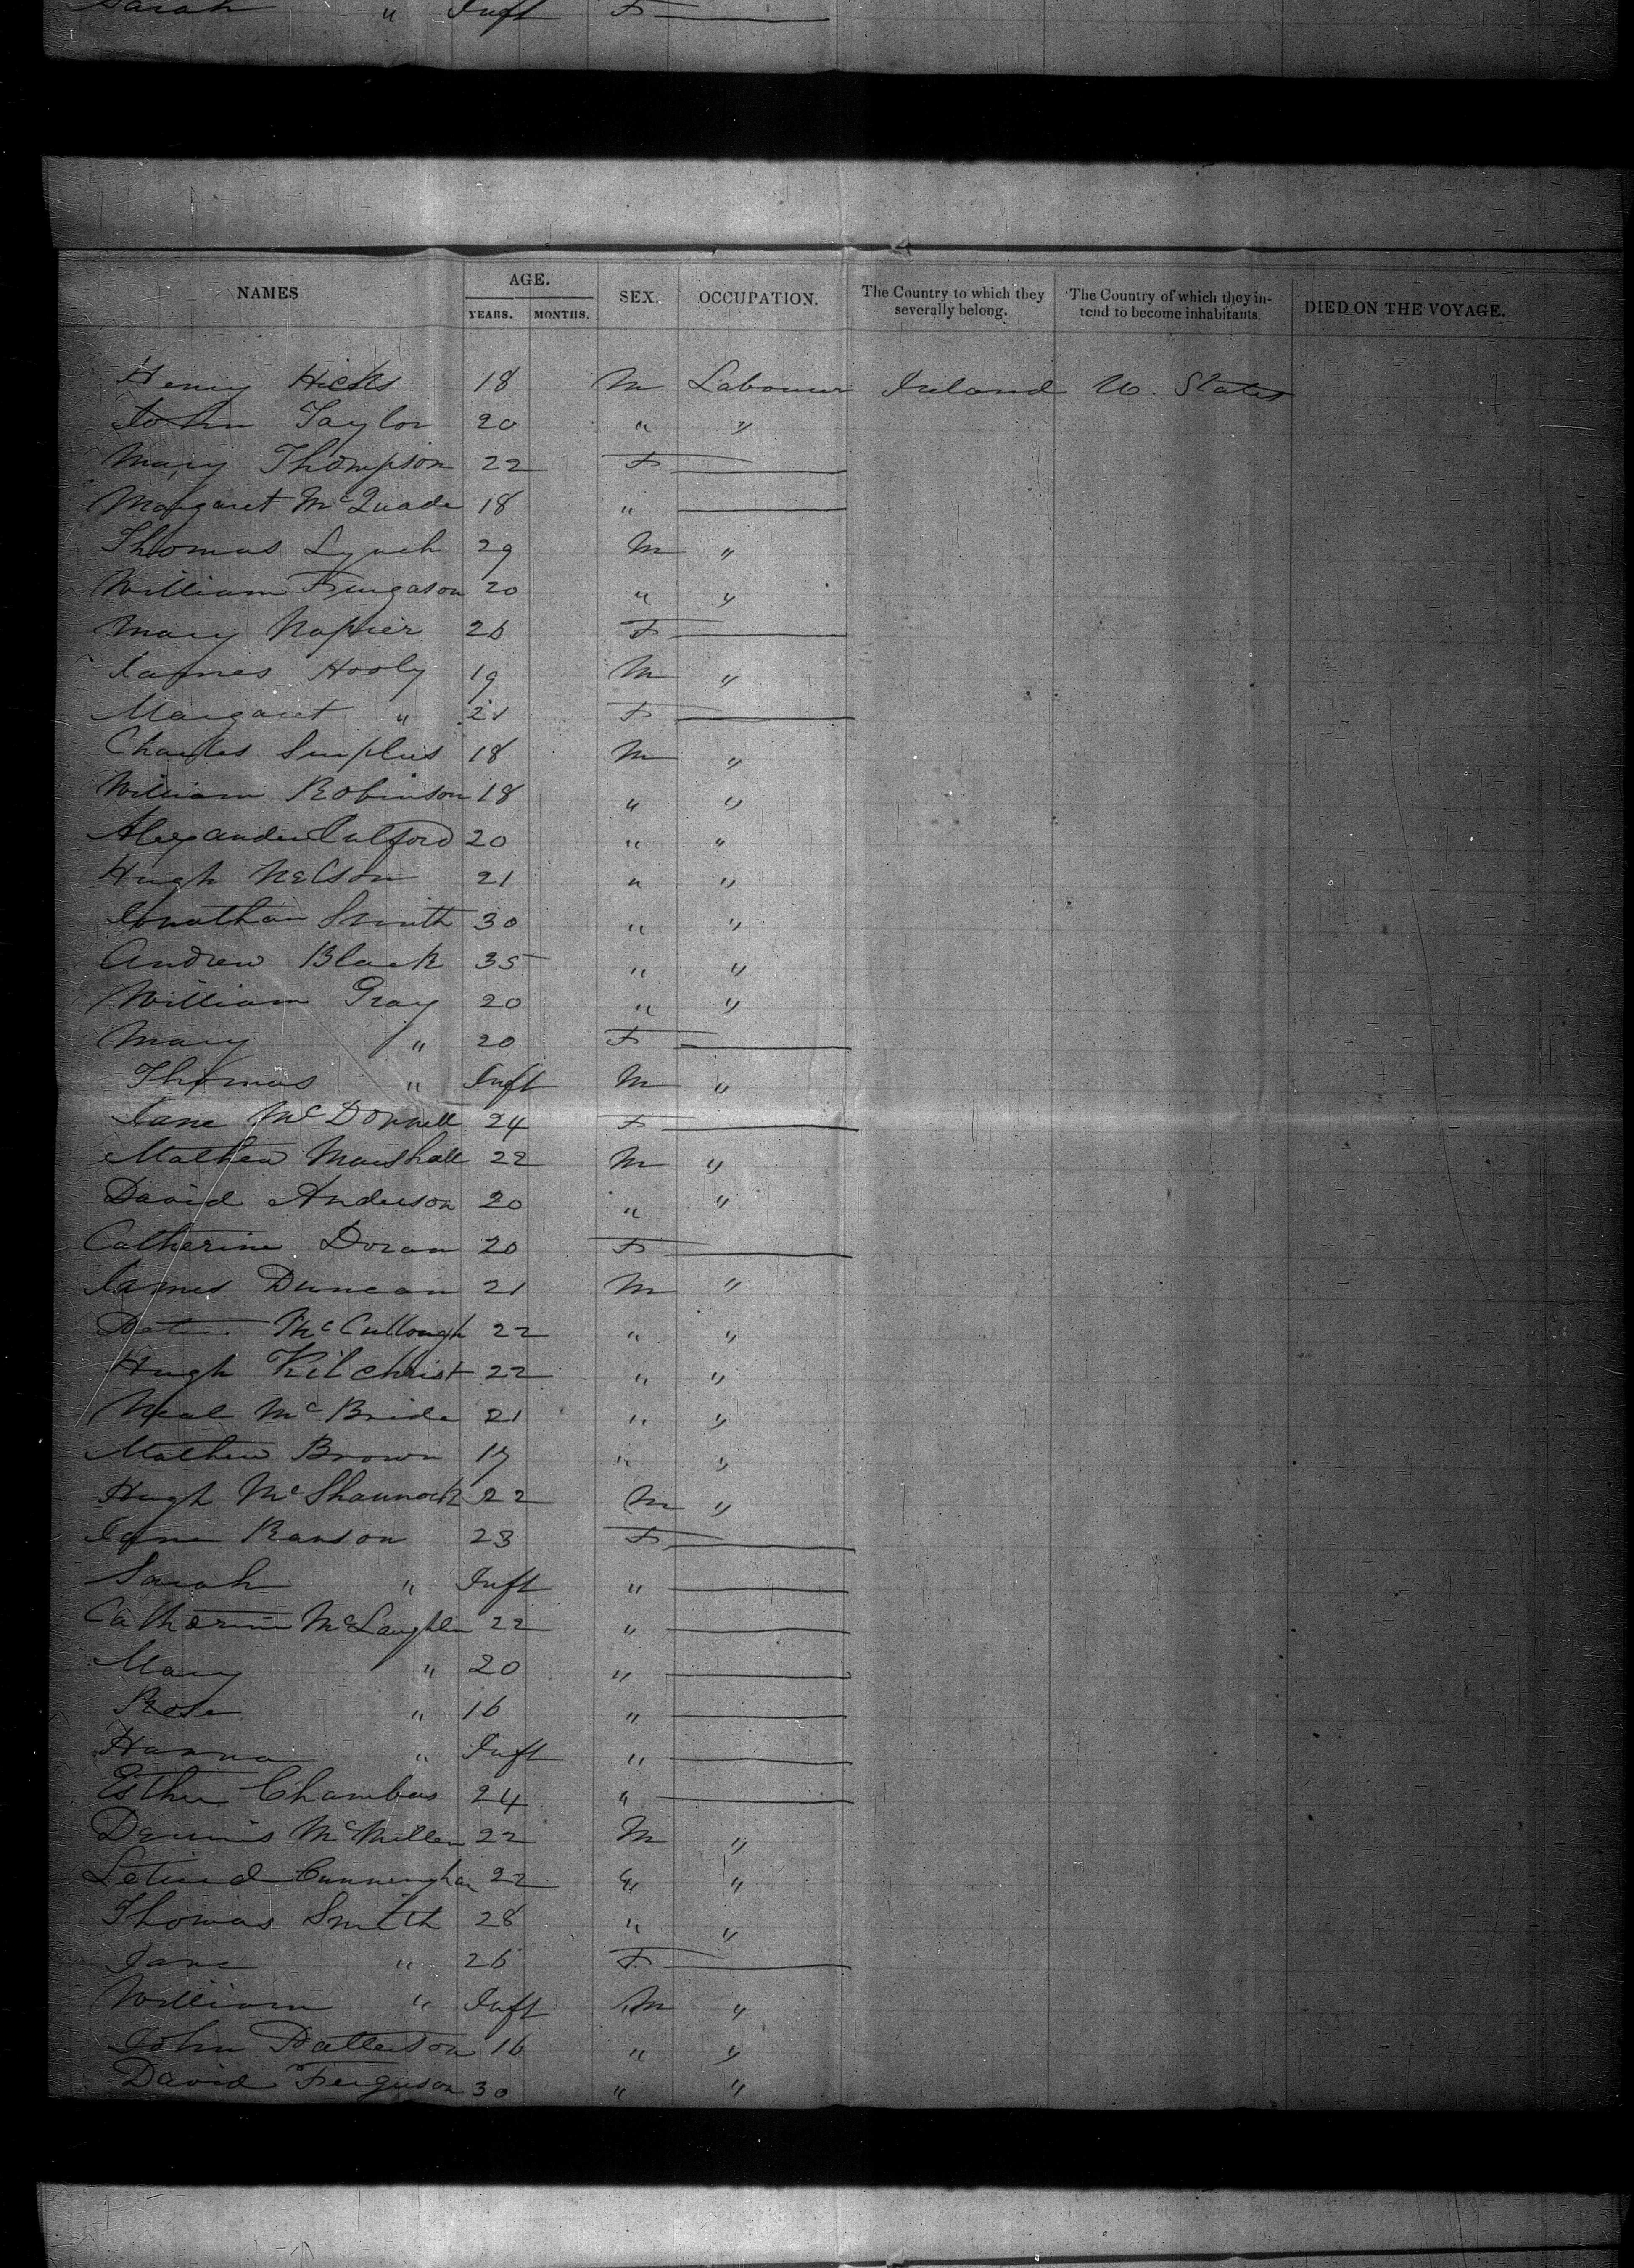 Sarah " Inft F
NAMES AGE. YEARS. MONTHS. SEX. OCCUPATION. The Country to which they severally belong. The Country of which they intend to become inhabitants. DIED ON THE VOYAGE.
Henry Hicks 18 M Labourer Ireland U. States
John Taylor 20 " "
Mary Thompson 22 F
Margaret McQuade 18 "
Thomas Lynch 29 M "
William Fergason 20 " "
Mary Napier 26 F
James Hooly 19 M "
Margaret " 21 F
Charles 18 M "
William Robinson 18 " "
Alexander 20 " "
Hugh Nelson 21 " "
Jonathan Smith 30 " "
Andrew Black 35 " "
William Gray 20 " "
Mary " 20 F
Thomas " Inft M "
Jane McDonnell 24 F
Mathew Marshall 22 M "
David Anderson 20 " "
Catherine Doran 20 F
James Duncan 21 M "
McCullough 22 " "
Hugh Kilchrist 22 " "
Neal McBride 21 " "
Mathew Brown 17 " "
Hugh McShannock 22 M "
Jane Ranson 23 F
Sarah " Inft "
Catherine McLaughlin 22 "
Mary " 20 "
Rose " 16 "
Hanna " Inft "
Esther Chambers 24 "
Dennis McMillen 22 M "
Cunningham 22 " "
Thomas Smith 28 " "
Jane " 26 F
William " Inft M "
John Patterson 16 " "
David Ferguson 30 " "